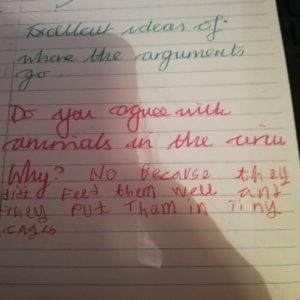 Excellent ideas of
where the arguments
go.
Do you agree with
animals in the
Why? No Because they
feed them well and
they put Them in Tiny
cages